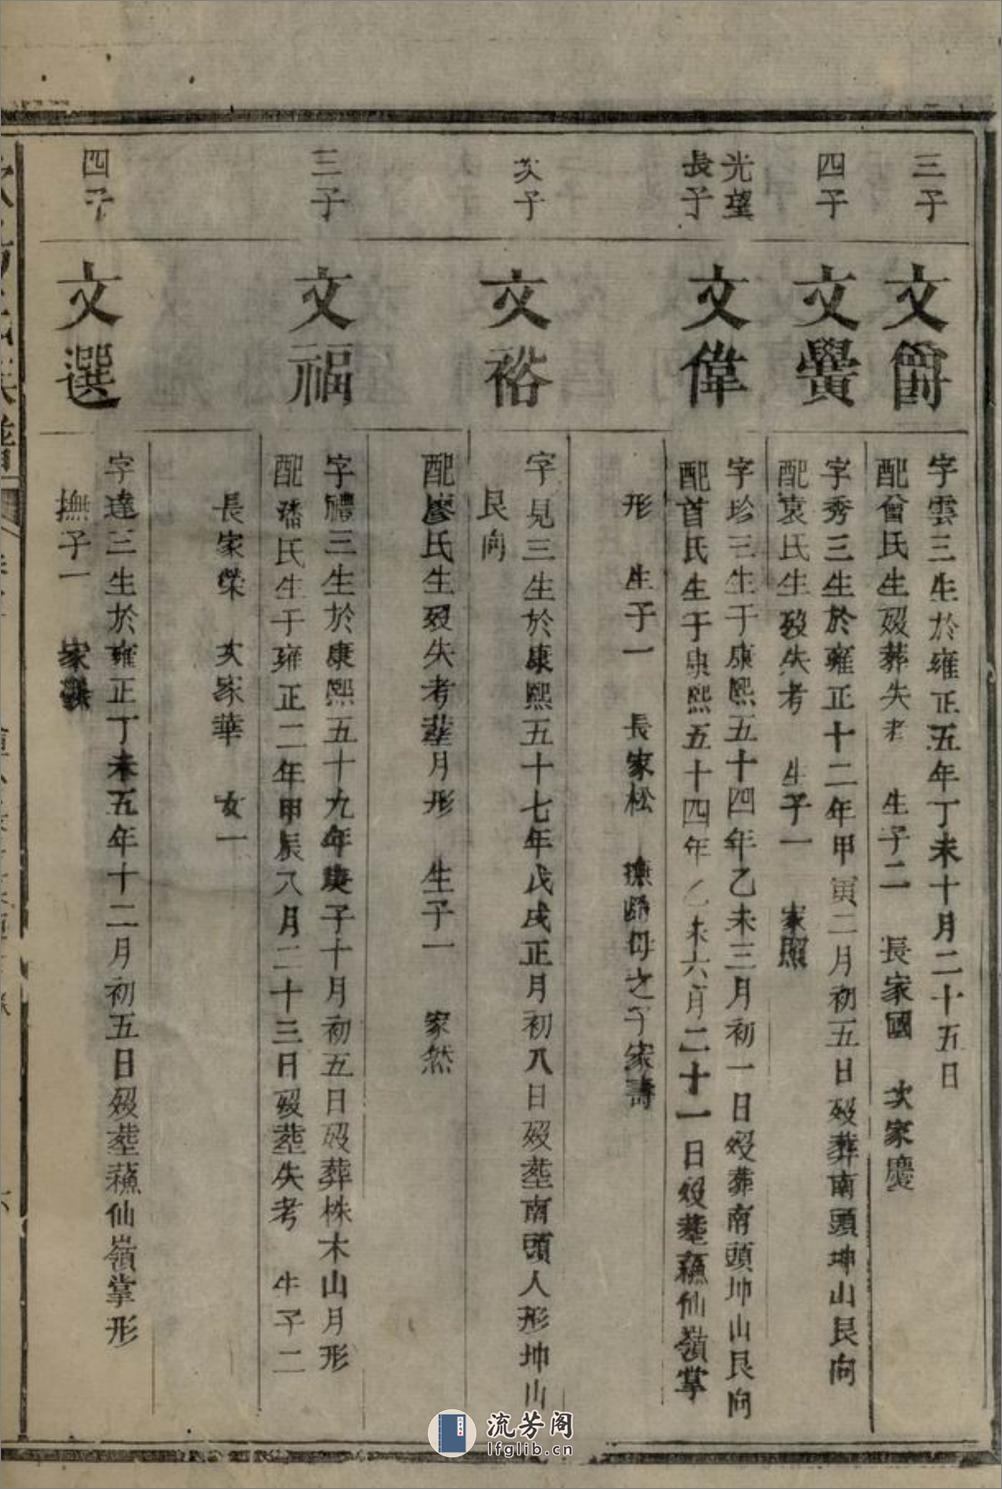 三子
文爵
字雲三生於雍正五年丁未十月二十五日
配曾氏生歿葬失考 生子二 長家國 次家慶
四子
文黌
字秀三生於雍正十二年甲寅二月初五日歿葬南頭坤山艮向
配袁氏生歿失考 生子一 家照
光望
長子
文偉
字珍三生于康熙五十四年乙未三月初一日歿葬南頭坤山艮向
配首氏生于康熙五十四年乙未六月二十一日歿塟蘓仙嶺掌
形 生子一 長家松 撫 母之子家壽
次子
文裕
字見三生於康熙五十七年戊戌正月初八日歿塟南頭人形坤山
艮向
配廖氏生歿失考塟月形 生子一 家然
三子
文福
字禮三生於康熙五十九年庚子十月初五日歿葬株木山月形
配潘氏生于雍正二年甲辰八月二十三日歿塟失考 生子二
長家榮 次家華 女一
四子
文選
字達三生於雍正丁未五年十二月初五日歿塟蘓仙嶺掌形
撫子一 家
族譜
流芳阁
lfglib.cn